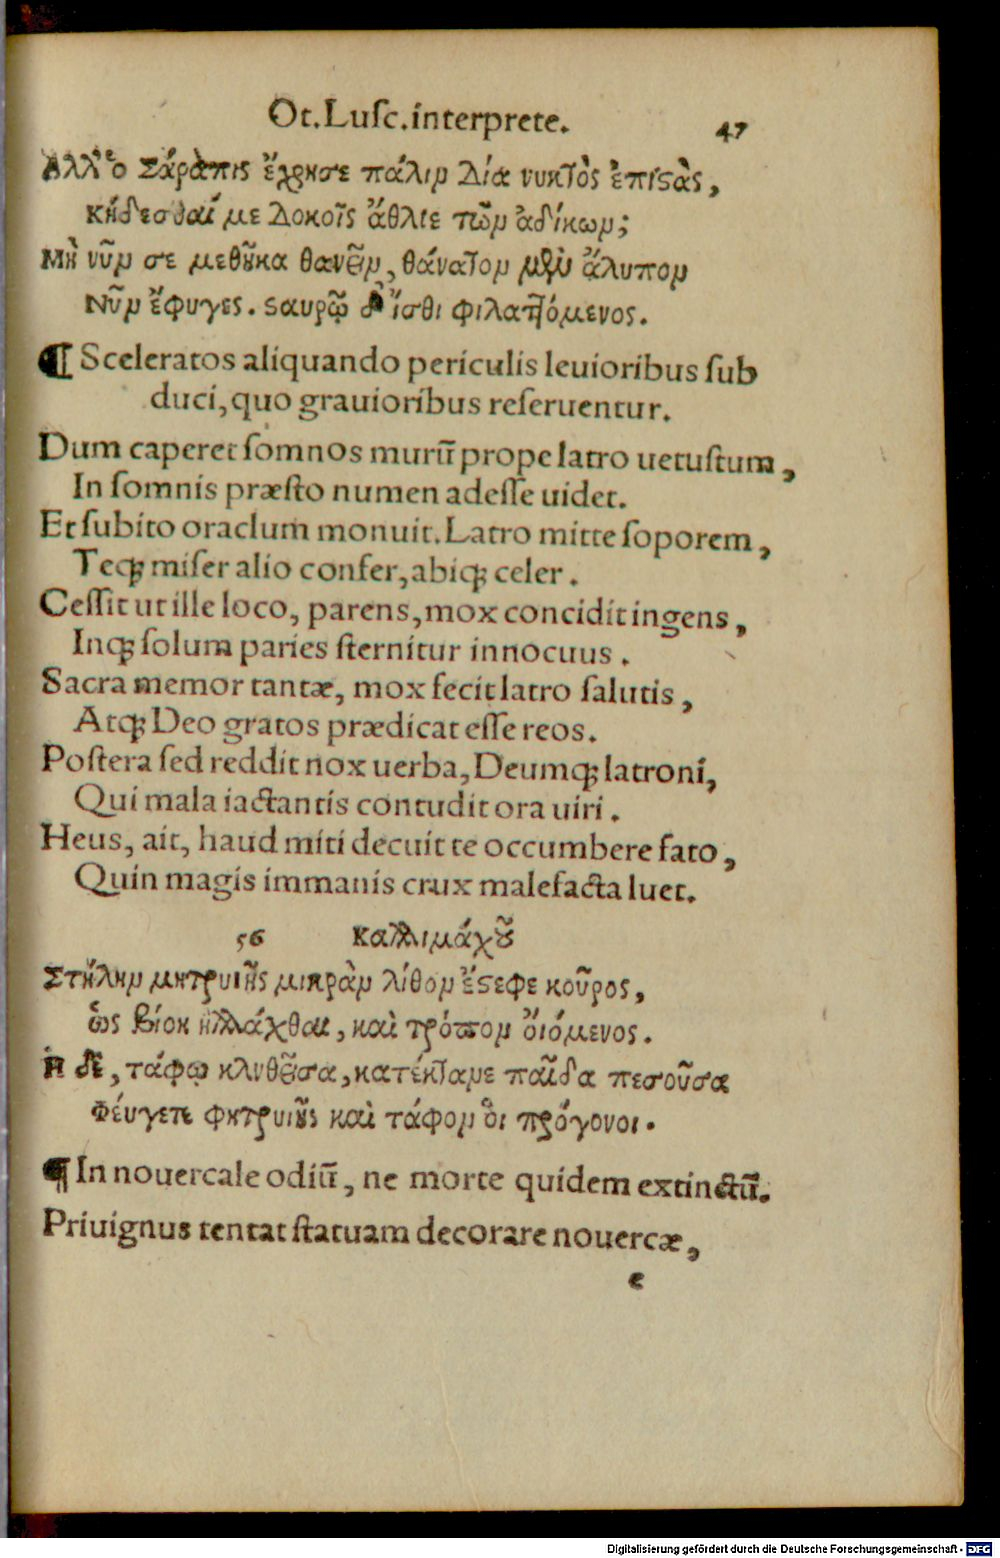 Ot. Luſc. interprete. 47
Ἀλλ' ὁ Σάραπις ἔχρησε πάλιν διὰ νυκτὸς ἐπιστὰς,
κήδεσθαί με δοκοῖς ἄθλιε τῶν ἀδίκων;
Μὴ νῦν σε μεθοῦκα θανεῖν, θάνατον μὲν ἄλυπον
Νῦν ἔφυγες. σταυρῷ δ' ἴσθι φιλαττόμενος.
¶ Sceleratos aliquando periculis leuioribus ſub
duci, quo grauioribus reſeruentur.
Dum caperet ſomnos murū prope latro uetuſtum,
In ſomnis præſto numen adeſſe uidet.
Et ſubito oraclum monuit. Latro mitte ſoporem,
Teq́ꝫ miſer alio confer, abiq́ꝫ celer.
Ceſſit ut ille loco, parens, mox concidit ingens,
Inq́ꝫ ſolum paries ſternitur innocuus.
Sacra memor tantæ, mox fecit latro ſalutis,
Atq́ꝫ Deo gratos prædicat eſſe reos.
Poſtera ſed reddit nox uerba, Deumq́ꝫ latroni,
Qui mala iactantis contudit ora uiri.
Heus, ait, haud miti decuit te occumbere fato,
Quin magis immanis crux malefacta luet.
56 Καλλιμάχου
Στήλην μητρυιῆς μικρὰν λίθον ἔστεφε κοῦρος,
ὡς βίον ἠλλάχθαι, καὶ τρόπον οἰόμενος.
Ἡ δὲ, τάφῳ κλινθεῖσα, κατέκτανε παῖδα πεσοῦσα
Φεύγετε φητρυιῆς καὶ τάφον οἱ πρόγονοι.
¶ In nouercale odiū, ne morte quidem extinctū.
Priuignus tentat ſtatuam decorare nouercæ,
e
Digitalisierung gefördert durch die Deutsche Forschungsgemeinschaft - DFG